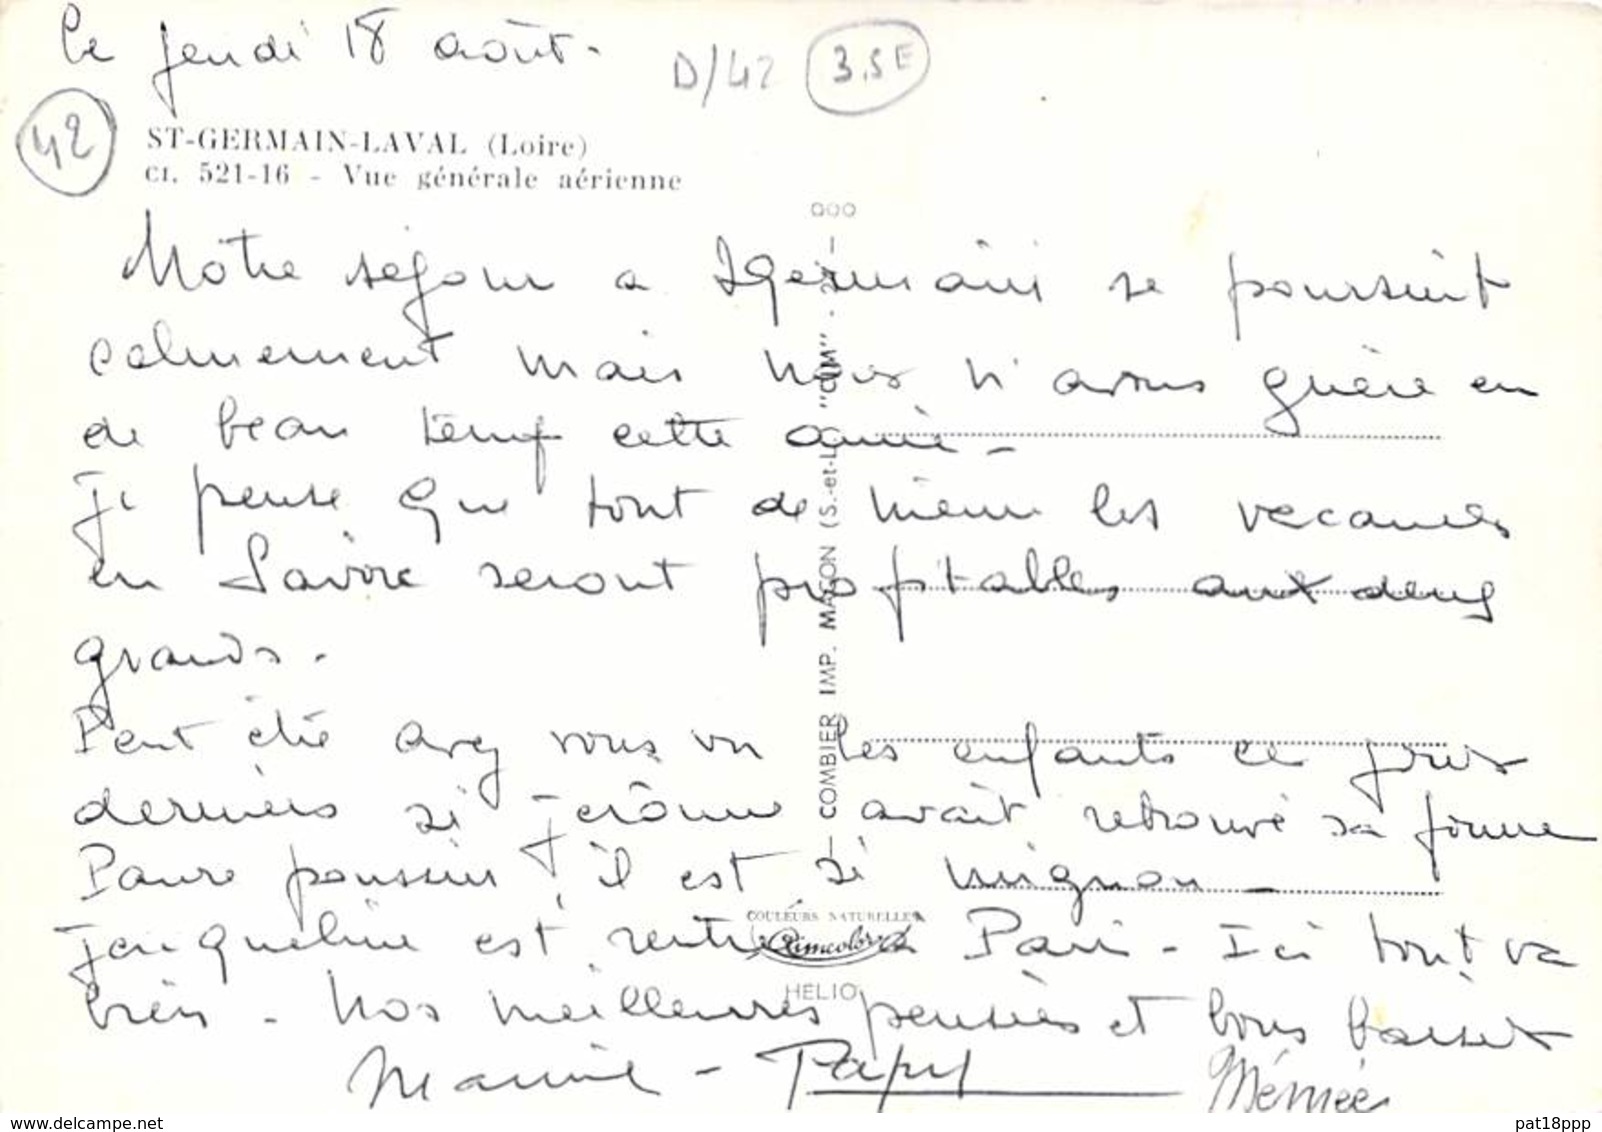 Le jeudi 18 août.
D/42
3,5E
42
ST-GERMAIN-LAVAL (Loire)
CI. 521-16 - Vue générale aérienne
Nôtre séjour a St Germain se poursuit
calmement mais nous n'avons guère eu
de beau temps cette année -
Je pense que tout de même les vacances
en Savoie seront profitables aux deux
grands.
Peut être avez vous vu les enfants ces jours
derniers si Jérôme avait retrouvé sa forme
Pauvre poussin, il est si mignon -
Jacqueline est rentrée à Paris - Ici tout va
bien - Nos meilleures pensées et bons baisers
Mamie - Papy Mémée
COMBIER IMP. MACON (S.-et-L.) "CIM"
COULEURS NATURELLES
Cimcolor
HELIO
pat18ppp